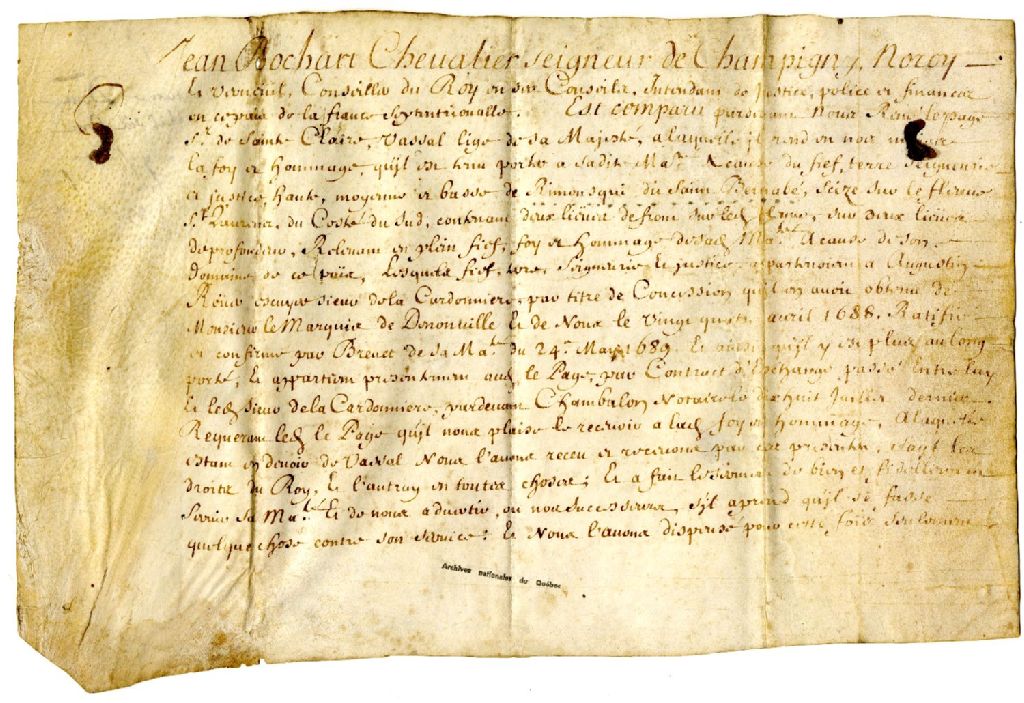 Jean Bochart Chevalier seigneur de Champigny, Noroy
le verneuil, Conseiller du Roy en ses Conseils, Intendant de justice, police et finances
en ce païs de la france septentrionalle. Est comparu pardevant Nous René lepage
Sr. de Sainte Claire, Vassal lige de sa Majesté, a laquelle il rend en nos
la foy et Hommage, qu'jl est tenu porter a sadite Maté. A cause du fief, terre seigneurie
et justice, haute, moyenne et basse de Rimousqui du Saint Bernabé, seize sur le fleuve
St. Laurens, du Costé du Sud, contenant deux lieües de front sur led. fleuve, sur deux lieües
de profondeur, Relevant en plein fief, foy et Hommage de sad. Maté. A cause de son
domaine de ce païs, Lesquels fief, terre, Seigneurie et justice appartenoient a Augustin
Roüer escuyer sieur de la Cardonniere, par titre de Concession qu'jl en avoit obtenu de
Monsieur le Marquis de Denonville et de Nous le vingt quatre avril 1688. Ratifié
et confirmé par Brevet de sa Maté. du 24e. May 1689. Et ainsi qu'jl y est plus au long
porté, Et appartient presentement aud. le Page, par Contract d'Eschange, passé Entre luy
Et led. sieur de la Cardonniere, pardevant Chambalon Notaire le dix huit Juillet dernier
Requerant led. le Page qu'jl nous plaise le recevoir a lad. foy et Hommage, A laquelle
estant en devoir de Vassal Nous l'avons receu et recevons par ces presentes, sauf les
droits du Roy, Et l'autruy en toutes choses; Et a fait le serment de bien et fidellement
servir sa Maté. Et de nous advertir, ou nos successeurs s'jl aprend qu'jl se fasse
quelque chose contre son service: Et Nous l'avons dispensé pour cette fois seulement
Archives nationales du Québec